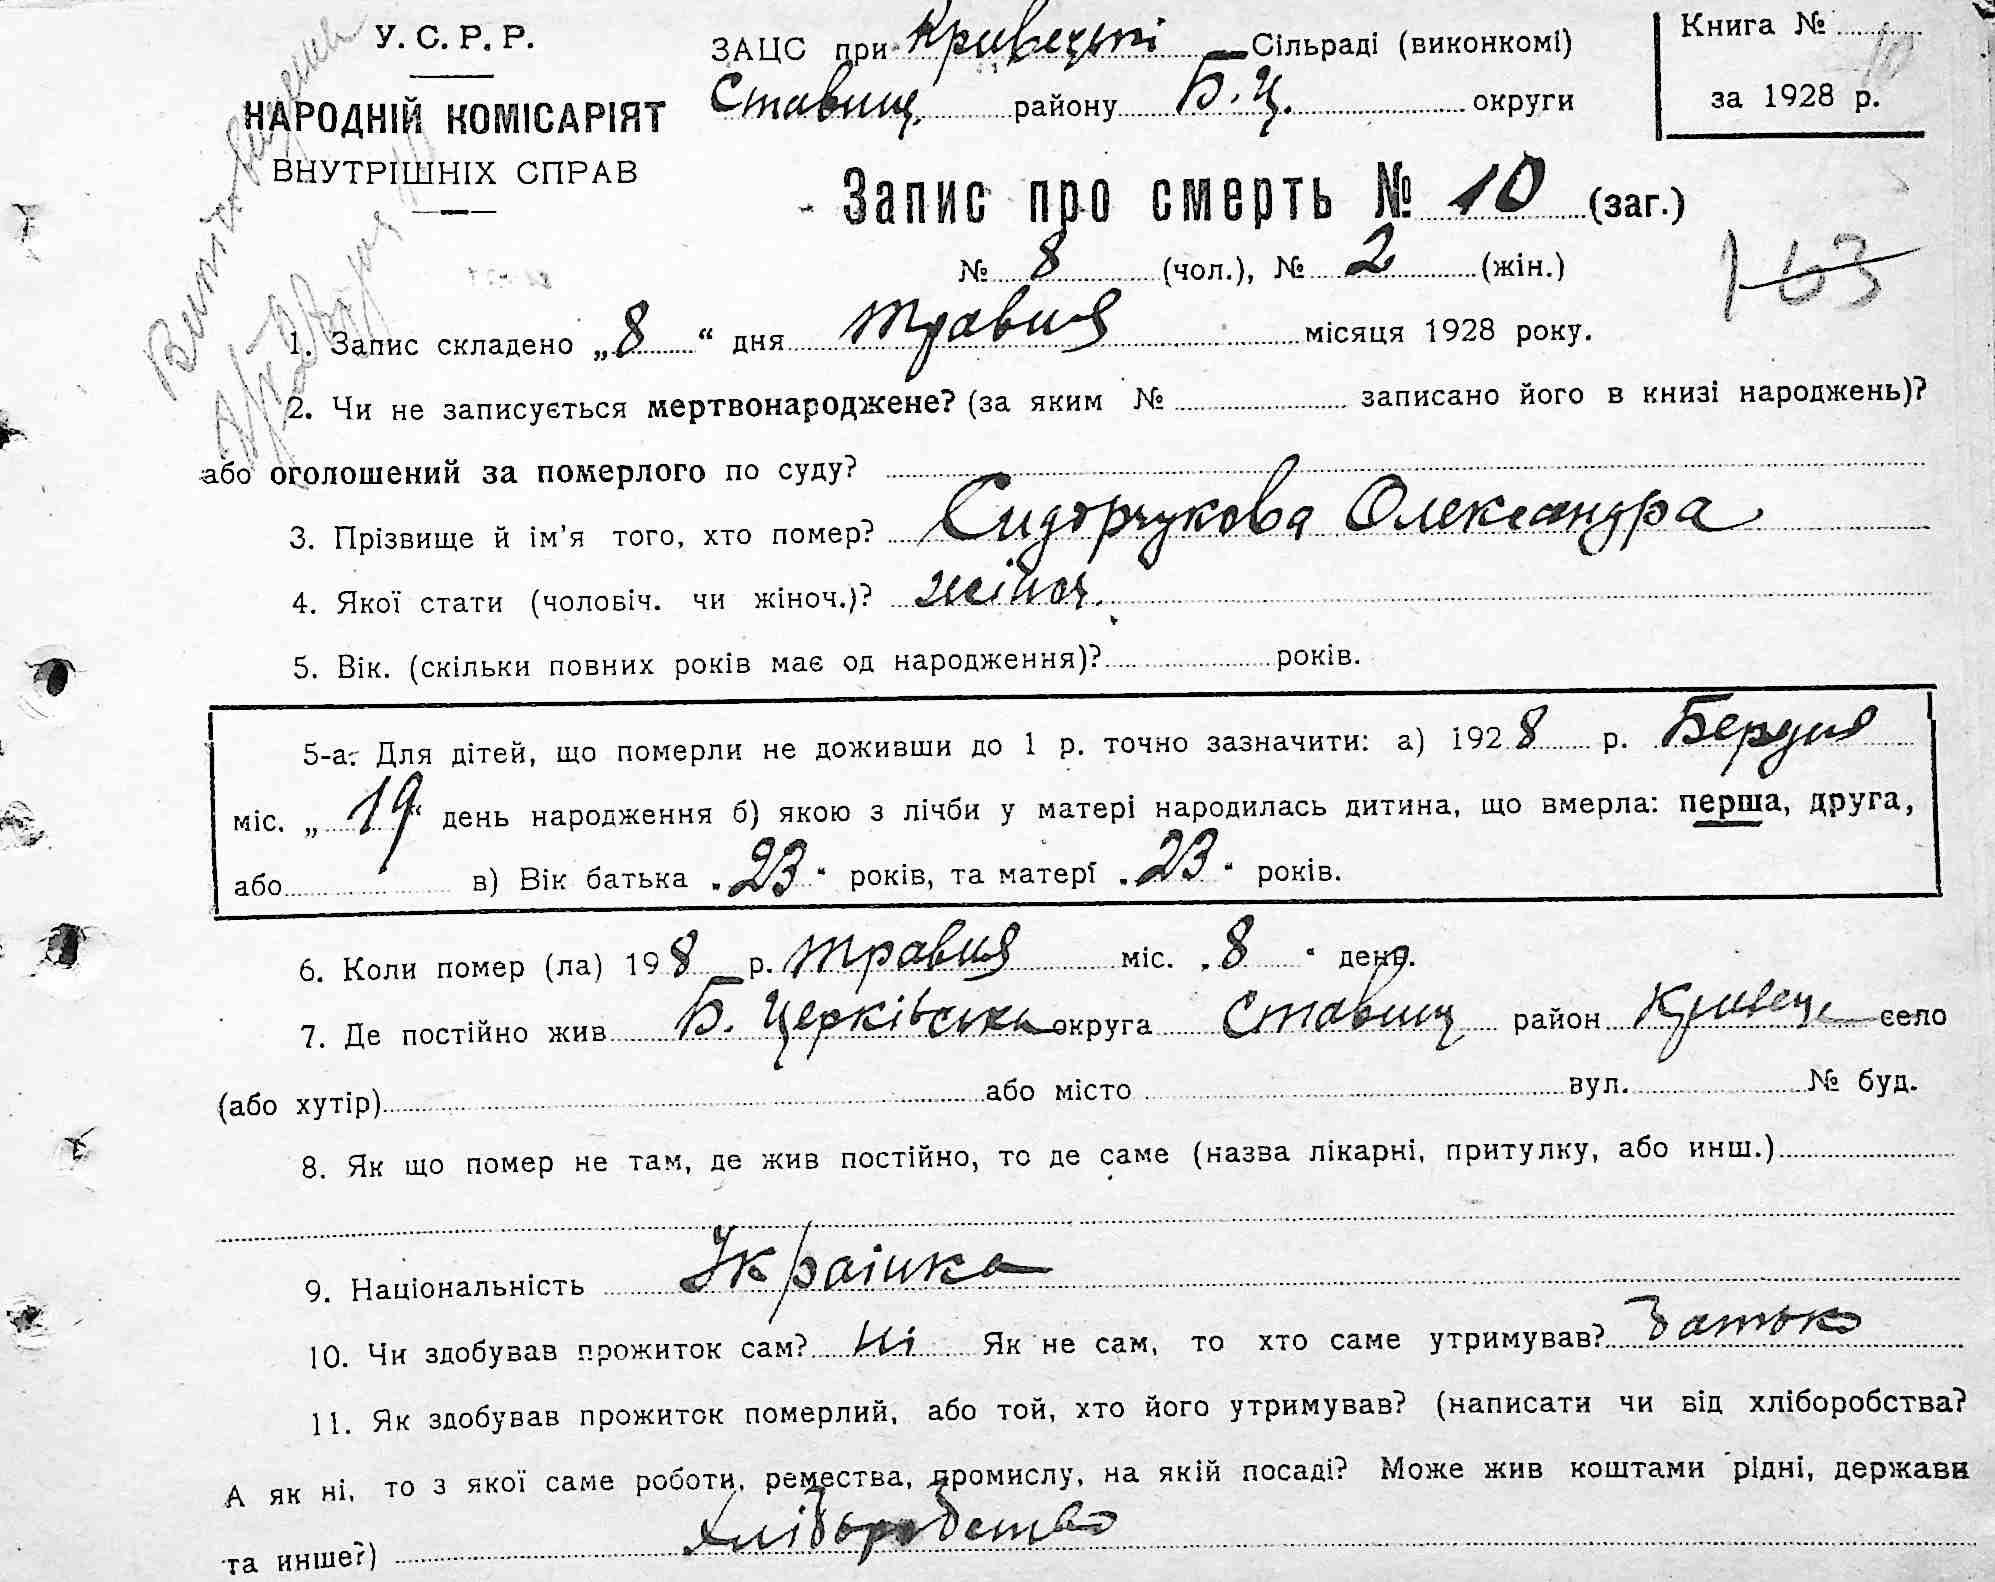 У. С. Р. Р.
НАРОДНІЙ КОМІСАРІЯТ
ВНУТРІШНІХ СПРАВ
ЗАЦС при Кривецькі Сільраді (виконкомі)
Ставищ. району Б. Ц. округи
Книга №
за 1928 р.
Запис про смерть № 10 (заг.)
№ 8 (чол.), № 2 (жін.)
163
1. Запис складено „8“ дня травня місяця 1928 року.
2. Чи не записується мертвонароджене? (за яким № записано його в книзі народжень)?
або оголошений за померлого по суду?
3. Прізвище й ім'я того, хто помер? Сидорчукова Олександра
4. Якої стати (чоловіч. чи жіноч.)? жіноч.
5. Вік. (скільки повних років має од народження)? років.
5-а. Для дітей, що померли не доживши до 1 р. точно зазначити: а) 1928 р. Бердня
міс. „19“ день народження б) якою з лічби у матері народилась дитина, що вмерла: перша, друга,
або в) Вік батька „23“ років, та матері „23“ років.
6. Коли помер (ла) 198 р. травня міс. „8“ день.
7. Де постійно жив Б. Церківська округа Ставищ район Кривець село
(або хутір) або місто вул. № буд.
8. Як що помер не там, де жив постійно, то де саме (назва лікарні, притулку, або инш.)
9. Національність Українка
10. Чи здобував прожиток сам? Ні Як не сам, то хто саме утримував? Батько
11. Як здобував прожиток померлий, або той, хто його утримував? (написати чи від хліборобства?
А як ні, то з якої саме роботи, ремества, промислу, на якій посаді? Може жив коштами рідні, держави
та инше?) Хліборобство